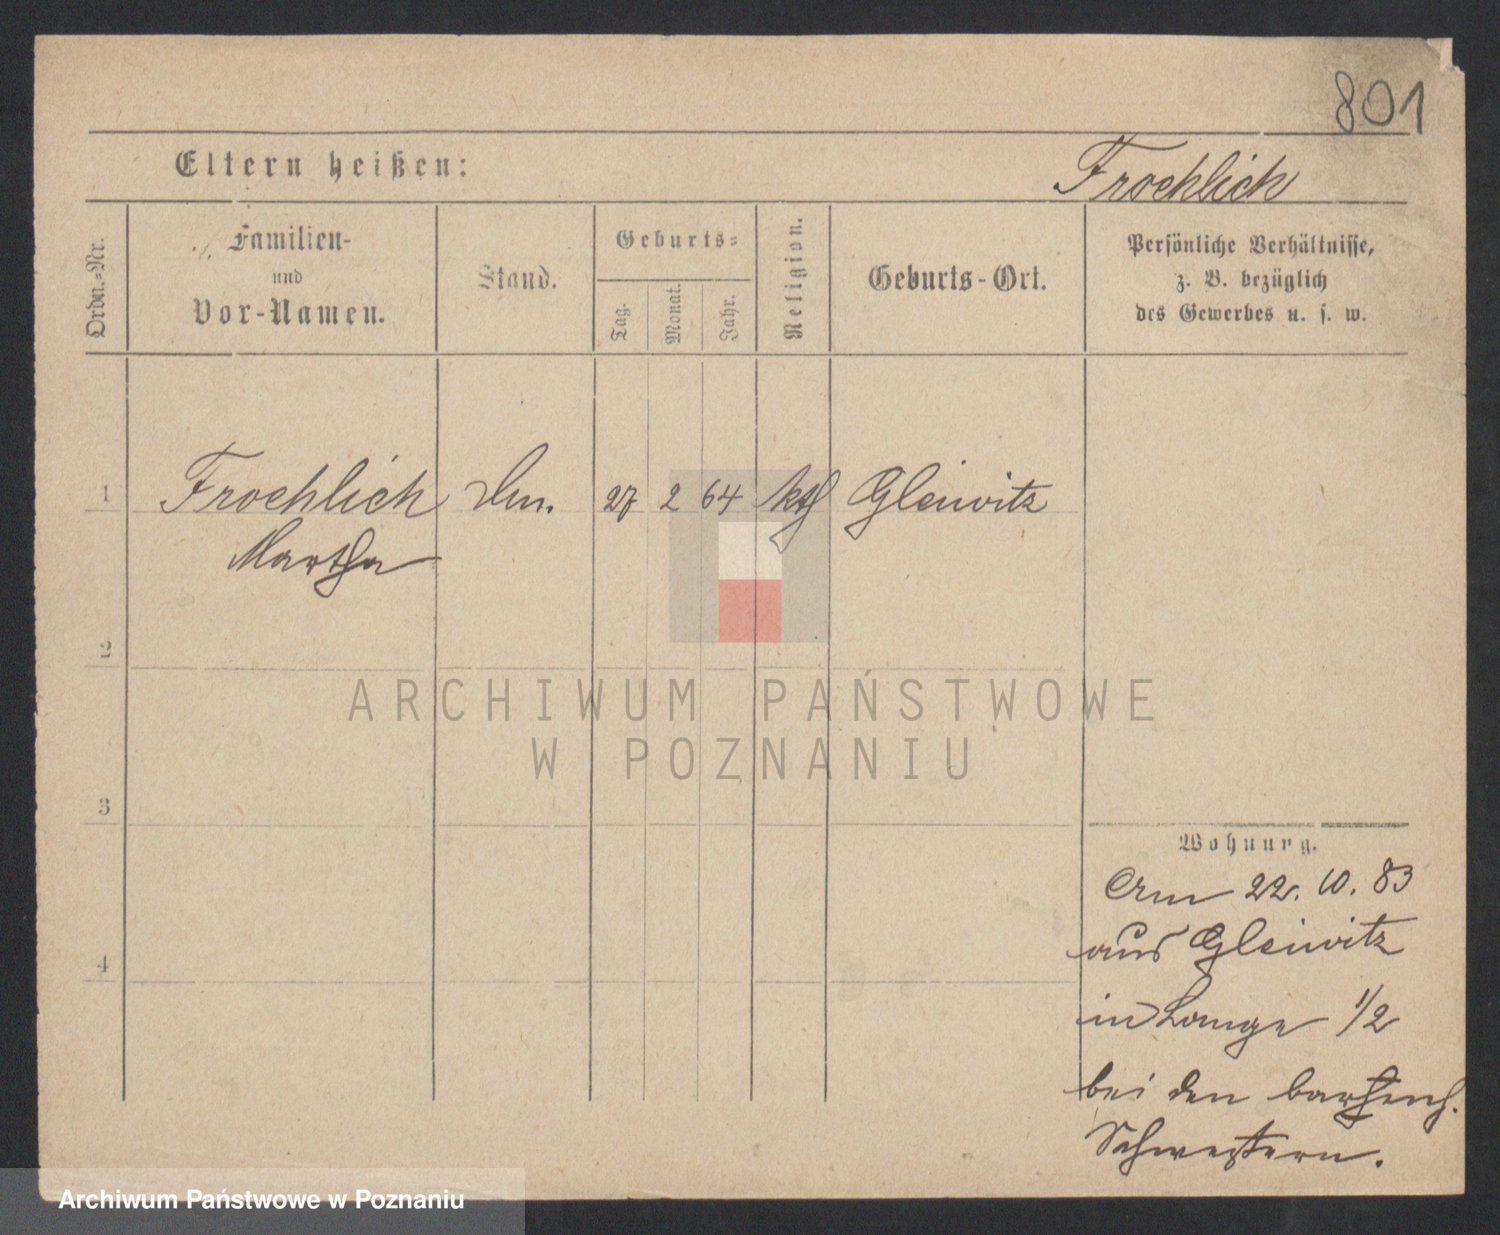 801
Eltern heißen:
Froehlich
Ordn.-Nr.
Familien-
und
Vor-Namen.
Stand.
Geburts-
Tag.
Monat.
Jahr.
Religion.
Geburts-Ort.
Persönliche Verhältnisse,
z. B. bezüglich
des Gewerbes u. s. w.
1 Froehlich 27 2 64 kth Gleiwitz
Martha
2
3
4
ARCHIWUM PAŃSTWOWE
W POZNANIU
Wohnung.
22. 10. 83
aus Gleiwitz
in Lange 1/2
bei den barmh.
Schwestern.
Archiwum Państwowe w Poznaniu